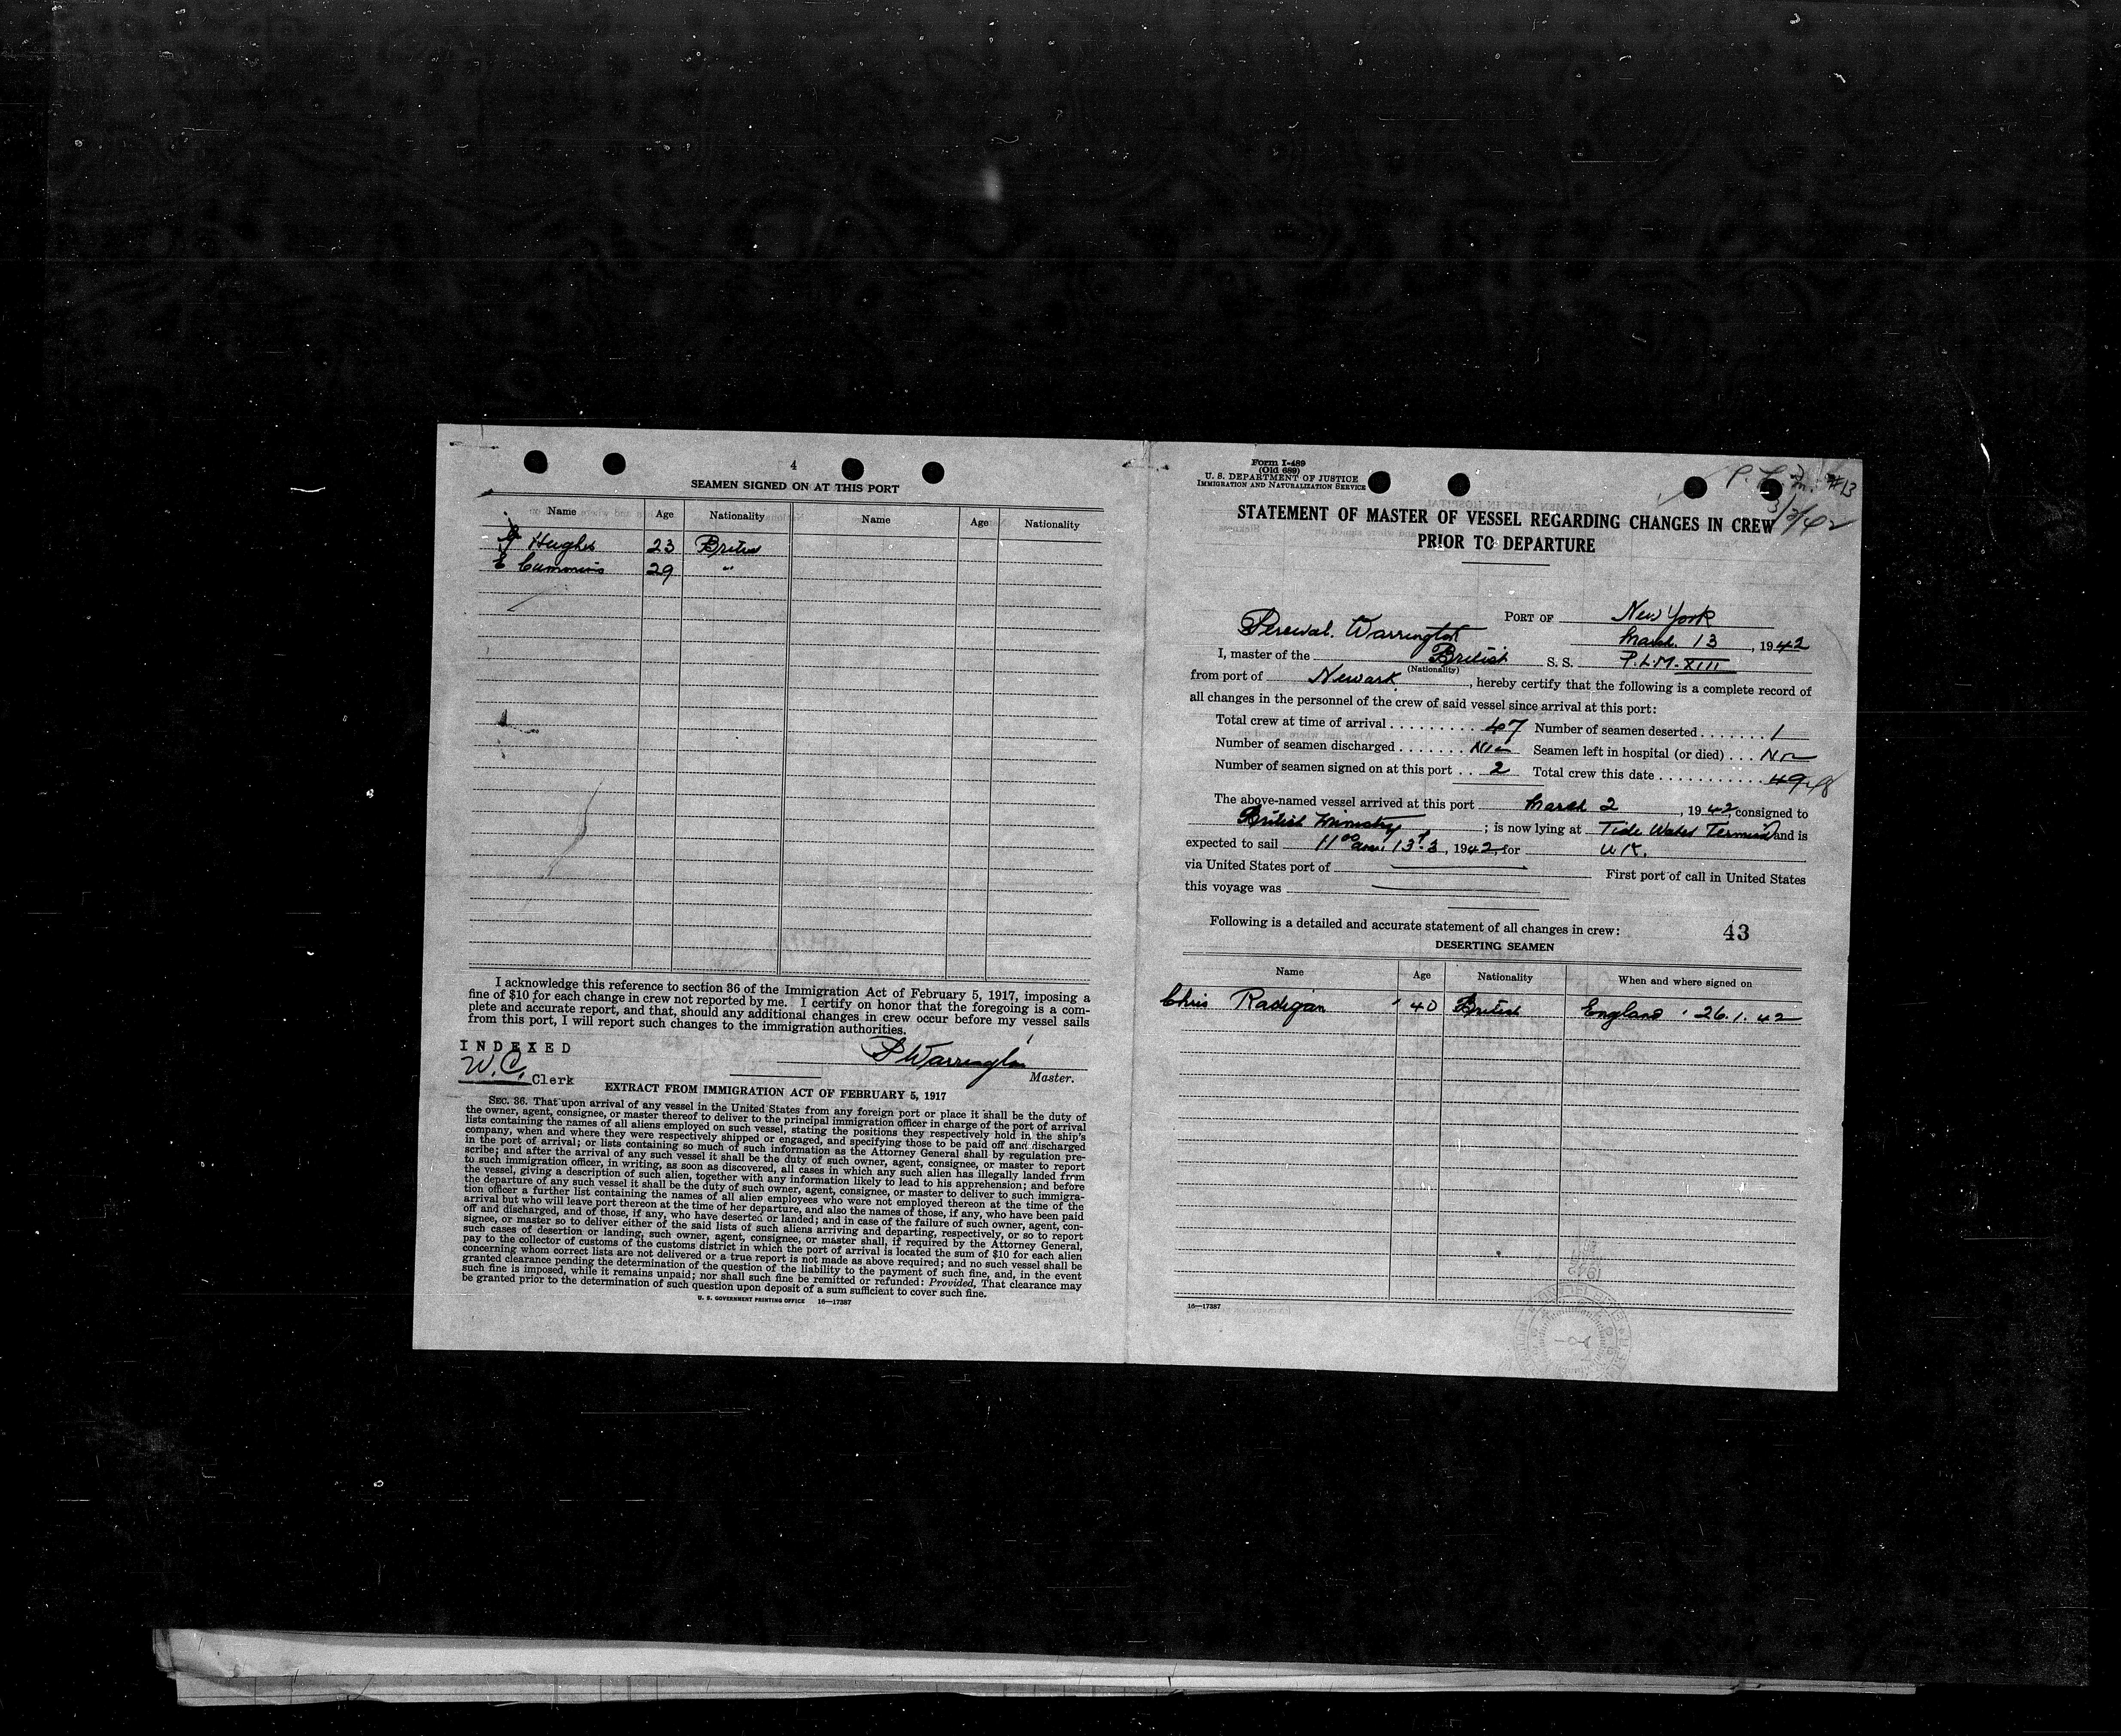 4
SEAMEN SIGNED ON AT THIS PORT
Name Age Nationality Name Age Nationality
Hughes 23 British
E Cummins 29 "
I acknowledge this reference to section 36 of the Immigration Act of February 5, 1917, imposing a
fine of $10 for each change in crew not reported by me. I certify on honor that the foregoing is a com-
plete and accurate report, and that, should any additional changes in crew occur before my vessel sails
from this port, I will report such changes to the immigration authorities.
INDEXED
W.C. Clerk
P Warrington
Master.
EXTRACT FROM IMMIGRATION ACT OF FEBRUARY 5, 1917
SEC. 36. That upon arrival of any vessel in the United States from any foreign port or place it shall be the duty of
the owner, agent, consignee, or master thereof to deliver to the principal immigration officer in charge of the port of arrival
lists containing the names of all aliens employed on such vessel, stating the positions they respectively hold in the ship's
company, when and where they were respectively shipped or engaged, and specifying those to be paid off and discharged
in the port of arrival; or lists containing so much of such information as the Attorney General shall by regulation pre-
scribe; and after the arrival of any such vessel it shall be the duty of such owner, agent, consignee, or master to report
to such immigration officer, in writing, as soon as discovered, all cases in which any such alien has illegally landed from
the vessel, giving a description of such alien, together with any information likely to lead to his apprehension; and before
the departure of any such vessel it shall be the duty of such owner, agent, consignee, or master to deliver to such immigra-
tion officer a further list containing the names of all alien employees who were not employed thereon at the time of the
arrival but who will leave port thereon at the time of her departure, and also the names of those, if any, who have been paid
off and discharged, and of those, if any, who have deserted or landed; and in case of the failure of such owner, agent, con-
signee, or master so to deliver either of the said lists of such aliens arriving and departing, respectively, or so to report
such cases of desertion or landing, such owner, agent, consignee, or master shall, if required by the Attorney General,
pay to the collector of customs of the customs district in which the port of arrival is located the sum of $10 for each alien
concerning whom correct lists are not delivered or a true report is not made as above required; and no such vessel shall be
granted clearance pending the determination of the question of the liability to the payment of such fine, and, in the event
such fine is imposed, while it remains unpaid; nor shall such fine be remitted or refunded: Provided, That clearance may
be granted prior to the determination of such question upon deposit of a sum sufficient to cover such fine.
U. S. GOVERNMENT PRINTING OFFICE 16—17387
Form I-489
(Old 689)
U. S. DEPARTMENT OF JUSTICE
IMMIGRATION AND NATURALIZATION SERVICE
P. L. M. #13
3/3/42
STATEMENT OF MASTER OF VESSEL REGARDING CHANGES IN CREW
PRIOR TO DEPARTURE
PORT OF New York
Percival. Warrington March 13, 1942
I, master of the British S. S. P.L.M. XIII
(Nationality)
from port of Newark, hereby certify that the following is a complete record of
all changes in the personnel of the crew of said vessel since arrival at this port:
Total crew at time of arrival . . . . . . . . 47 Number of seamen deserted . . . . . . . 1
Number of seamen discharged . . . . . . . Nil Seamen left in hospital (or died) . . . Nil
Number of seamen signed on at this port . . 2 Total crew this date . . . . . . . . . . . 49 48
The above-named vessel arrived at this port March 2, 1942, consigned to
British Ministry; is now lying at Tide Water Terminal and is
expected to sail 11 00 am. 13.3, 1942, for U K.
via United States port of First port of call in United States
this voyage was
Following is a detailed and accurate statement of all changes in crew: 43
DESERTING SEAMEN
Name Age Nationality When and where signed on
Chris Radigan 40 British England 26.1.42
16—17387